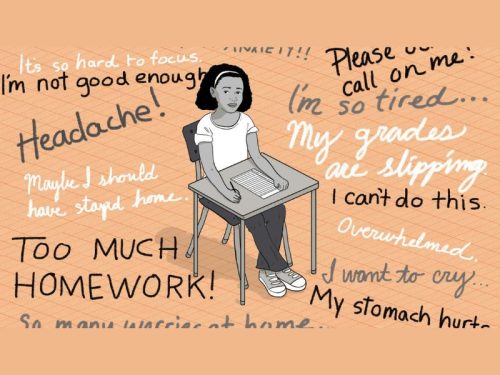 It's so hard to focus.
I'm not good enough
ANXIETY!!
Please
call on me!
Headache!
I'm so tired...
My grades
are slipping.
Maybe I should
have stayd home.
I can't do this.
Overwhelmed.
TOO MUCH
HOMEWORK!
I want to cry...
My stomach hurts
So many worries at home...